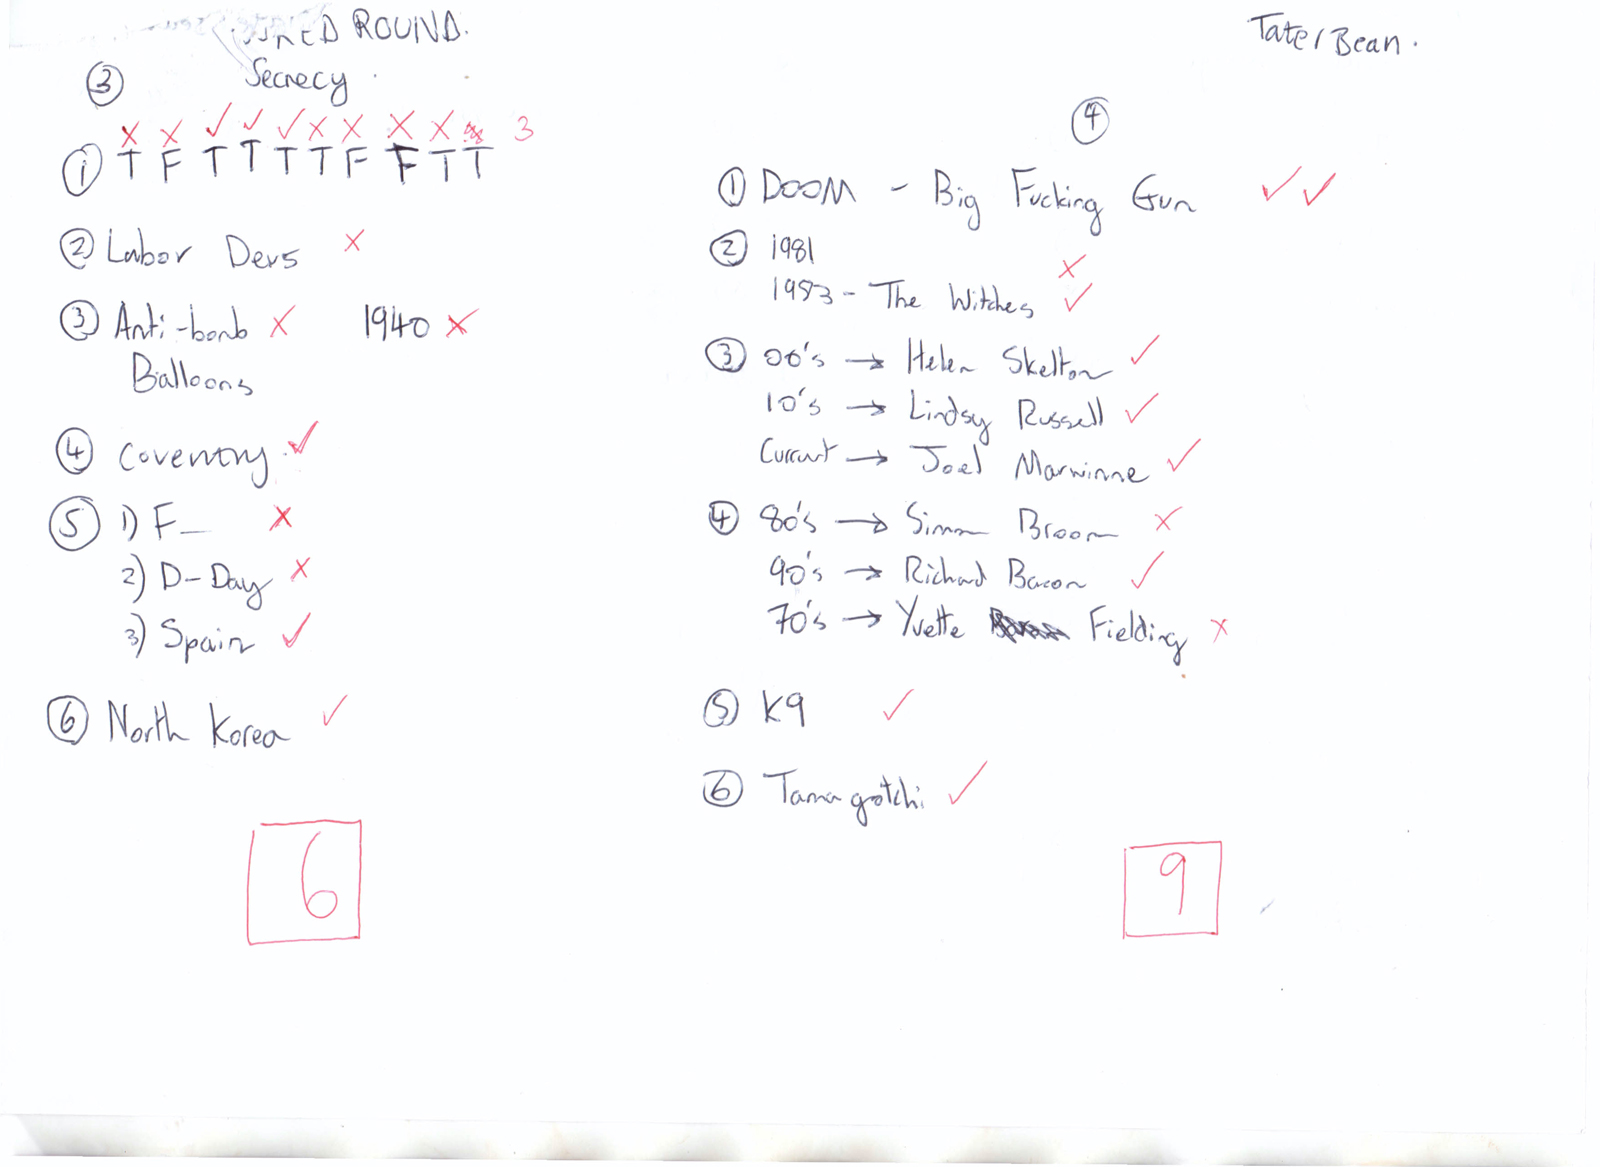 ROUND.
Secrecy.
3
① T F T T T T F F T T 3
② Labor Devs
③ Anti-bomb 1940
Balloons
④ Coventry
⑤ 1) F_
2) D-Day
3) Spain
⑥ North Korea
6
Tate/Bean.
④
① DOOM - Big Fucking Gun
② 1981
1983 - The Witches
③ 00's → Helen Skelton
10's → Lindsy Russell
Current → Joel Marwinne
④ 80's → Simon Broom
90's → Richard Bacon
70's → Yvette Fielding
⑤ K9
⑥ Tamagotchi
9